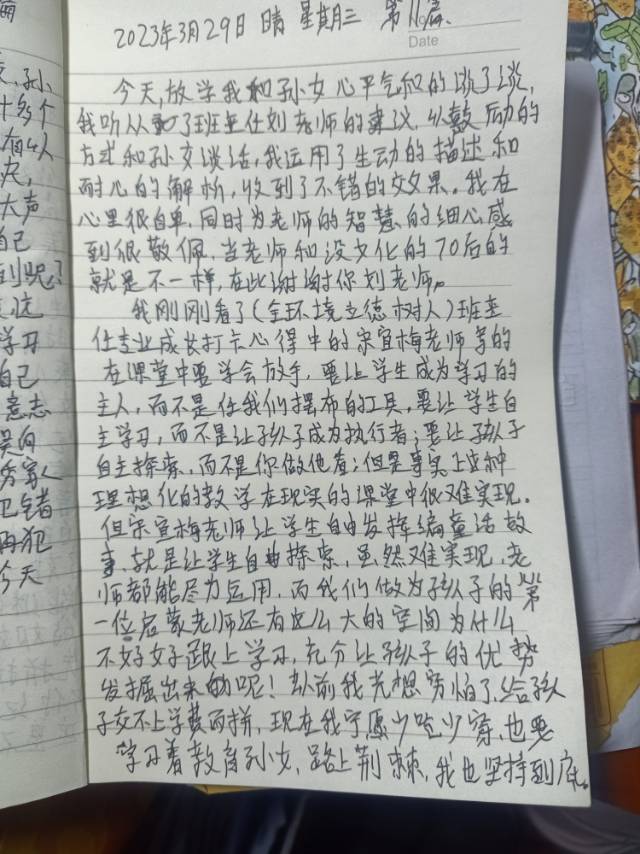 2023年3月29日 晴 星期三 第11篇
Date
今天,放学我和孙女心平气和的谈了谈,
我听从了班主任刘老师的建议,以鼓励的
方式和孙女谈话,我运用了生动的描述和
耐心的解析,收到了不错的效果。我在
心里很自卑,同时为老师的智慧的细心感
到很敬佩,当老师和没文化的70后的
就是不一样,在此谢谢你刘老师。
我刚刚看了(全环境立德树人)班主
任专业成长打卡心得中的宋宜梅老师写的
在课堂中要学会放手,要让学生成为学习的
主人,而不是任我们摆布的工具,要让学生自
主学习,而不是让孩子成为执行者;要让孩子
自主探索,而不是你做他看;但是事实上这种
理想化的教学在现实的课堂中很难实现。
但宋宜梅老师让学生自由发挥编童话故
事,就是让学生自由探索,虽然难实现,老
师都能尽力运用,而我们做为孩子的第
一位启蒙老师还有这么大的空间为什么
不好好跟上学习,充分让孩子的优势
发掘出来的呢!从前我光想穷怕了,给孩
子交不上学费而拼,现在我宁愿少吃少穿,也要
学习着教育孙女,路上荆棘,我也坚持到底。
孙
十多个
大声
自己
到呢?
学习
自己
意志
卫错
再犯
今天